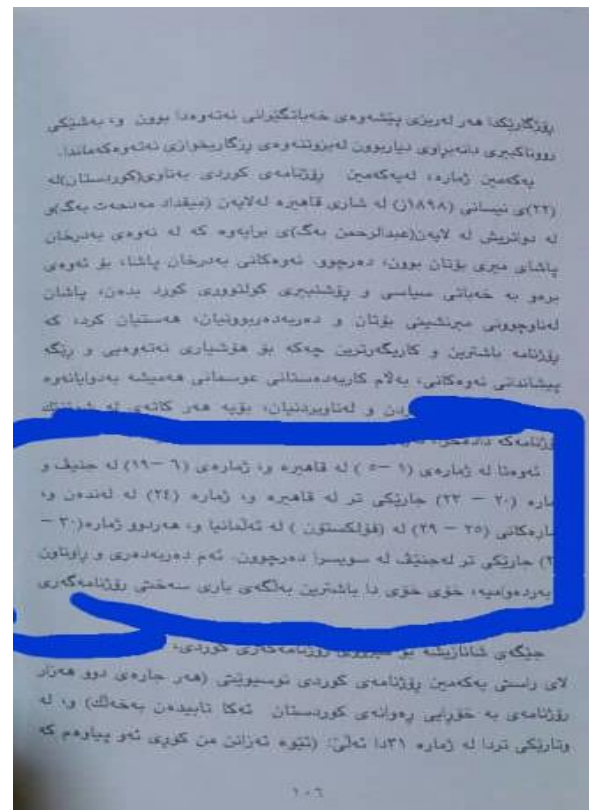 رۆژگارێکدا هەر لەریزی پێشەوەی خەباتگێرانی نەتەوەدا بوون و، بەشێکی
رووناکبیری دانەبراوی دیاربوون لەبزوتنەوەی رزگاریخوازی نەتەوەکەماندا.
یەکەمین ژمارە، لەیەکەمین رۆژنامەی کوردی بەناوی(کوردستان)لە
(٢٢)ی نیسانی (١٨٩٨ز) لە شاری قاهیرە لەلایەن (میقداد مەدحەت بەگ)و
لە دواتریش لە لایەن(عبدالرحمن بەگ)ی برایەوە کە لە نەوەی بەدرخان
پاشای میری بۆتان بوون، دەرچوو. نەوەکانی بەدرخان پاشا، بۆ ئەوەی
برەو بە خەباتی سیاسی و رۆشنبیری کولتووری کورد بدەن، پاشان
لەناوچوونی میرنشینی بۆتان و دەربەدەربوونیان، هەستیان کرد، کە
رۆژنامە باشترین و کاریگەرترین چەکە بۆ هۆشیاری نەتەوەیی و رێگە
پیشاندانی نەوەکانی، بەڵام کاربەدەستانی عوسمانی هەمیشە بەدوایانەوە
و لەناوبردنیان، بۆیە هەر کاتەی لە شوێنێك
رۆژنامەکە دادەخرا،
ئەوەتا لە ژمارەی (١ –٥ ) لە قاهیرە و، ژمارەی (٦ –١٩) لە جنێف و
مارە (٢٠ – ٢٣) جارێکی تر لە قاهیرە و، ژمارە (٢٤) لە لەندەن و،
مارەکانی (٢٥ – ٢٩) لە (فۆلکستۆن ) لە ئەڵمانیا و، هەردوو ژمارە(٣٠ –
جارێکی تر لەجنێف لە سویسرا دەرچوون. ئەم دەربەدەری و راوناون
بەردەوامیە، خۆی خۆی دا باشترین بەڵگەی باری سەختی رۆژنامەگەری
جێگەی شانازیشە بۆ مێژووی رۆژنامەگەری کوردی،
لای راستی یەکەمین رۆژنامەی کوردی نوسیوێتی (هەر جارەی دوو هەزار
رۆژنامەی بە خۆرایی رەوانەی کوردستان ئەکا تابیدەن بەخەڵك) و، لە
وتارێکی تردا لە ژمارە ٣١دا ئەڵێ: (ئێوە ئەزانن من کوری ئەو پیاوەم کە
١٠٦